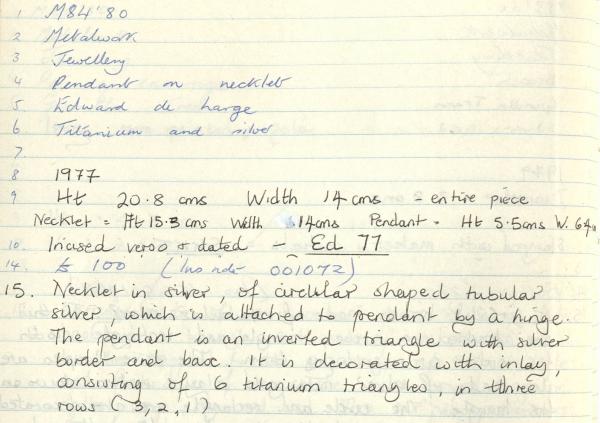 1 M84'80
2 Metalwork
3 Jewellery
4 Pendant on necklet
5 Edward de large
6 Titanium and silver
7.
8 1977
9 Ht 20.8 cms Width 14 cms - entire piece
Necklet = Ht 15.3 cms Width 14cms Pendant = Ht 5.5cms W. 6.4
10. Incised verso & dated - Ed 77
14. £ 100 (Inv note 001072)
15. Necklet in silver, of circular shaped tubular
silver, which is attached to pendant by a hinge.
The pendant is an inverted triangle with silver
border and base. It is decorated with inlay,
consisting of 6 titanium triangles, in three
rows (3, 2, 1)